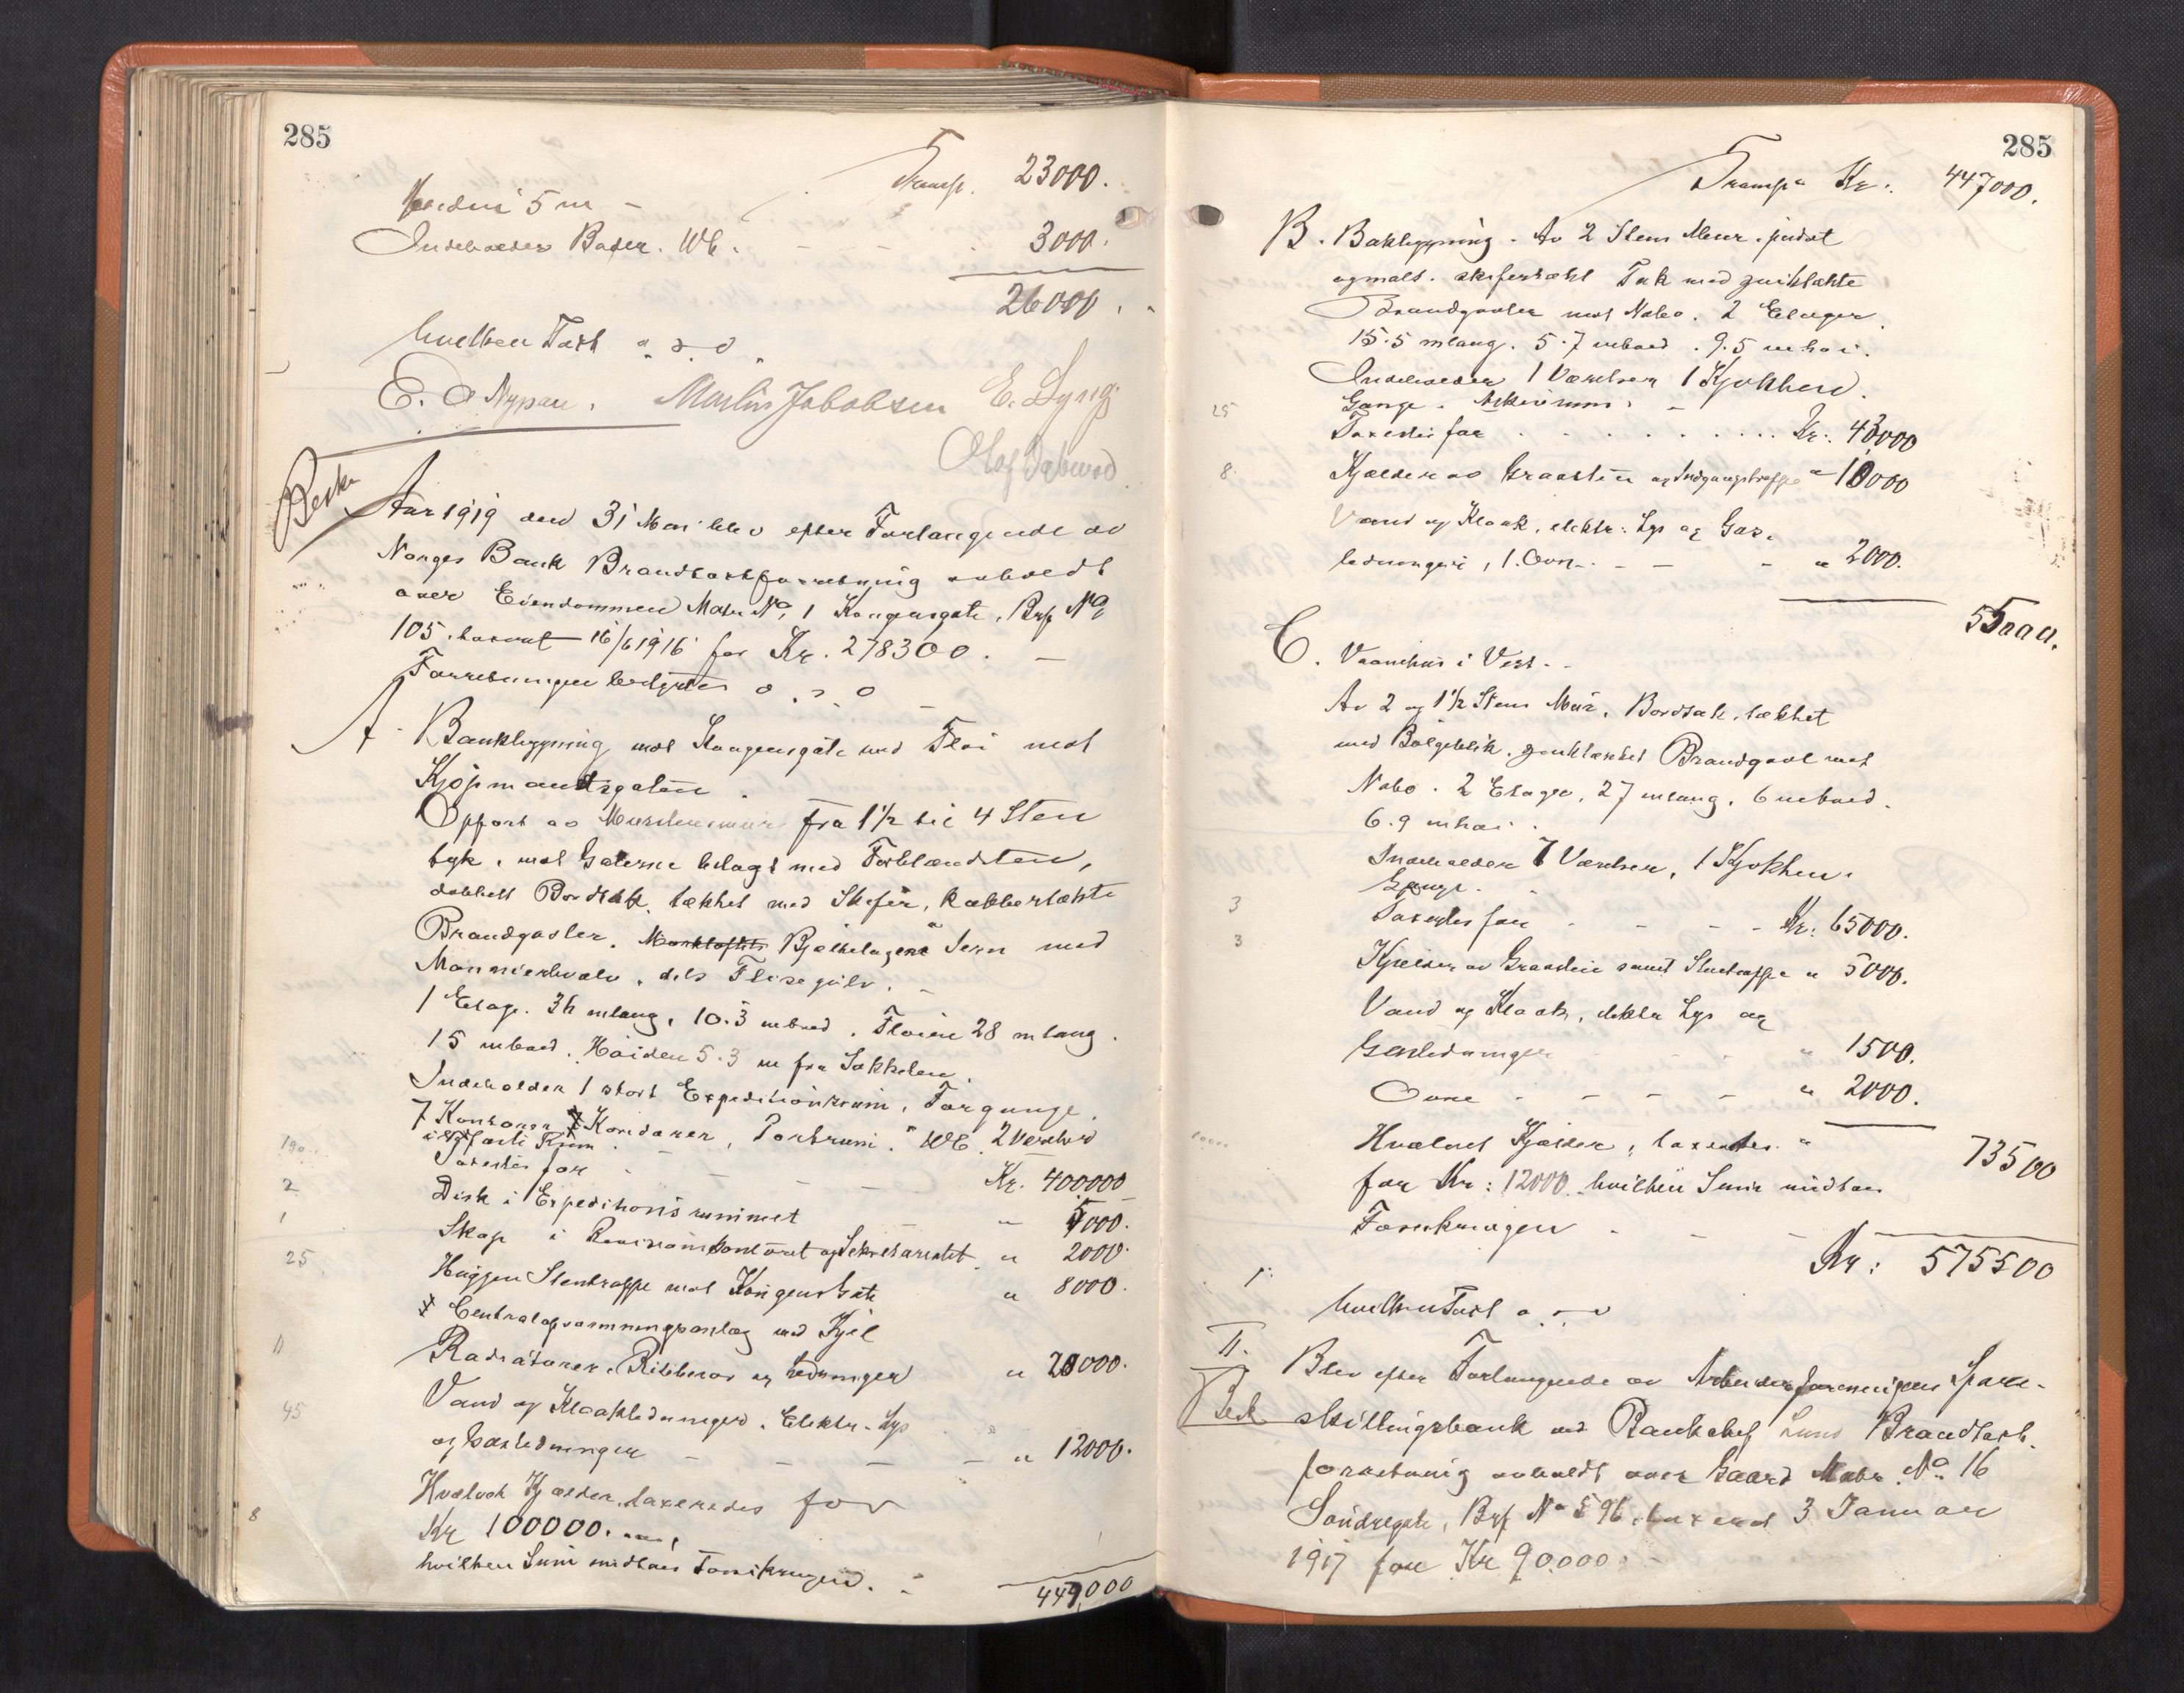 285
Transp. 23000.
Høiden 5 m -
Indeholder Bader. WC. - - 3000.
26000.
hvilken Taxt o. s. v.
E. O Nypan. Martin Jakobsen E. Lyng.
Olaf
Besk.
Aar 1919 den 31 Mai blev efter Forlangende av
Norges Bank Brandtaxtforretning avholdt
over Eiendommen Matr No 1 Kongensgate, Brf No
105. taxeret 16/6 1916 for Kr. 278300. -
Forretningen betyder o. s. v
A. Bankbygning mot Kongensgate med Fløi mot
Kjøpmandsgaten.
Opført av Murstensmur fra 1 1/2 til 4 Sten
tyk, mot Gaterne belagt med Forblændsten,
dobbelt Bordtak, tækket med Skifer, Kobbertækte
Brandgavler. Bjælkelagene Jern med
Monnierhvælv, dels Flisegulv. -
1 Etage. 36 m lang, 10.3 m bred. Fløien 28 m lang.
15 m bred. Høiden 5.3 m fra Sokkelen.
Indeholder 1 stort Ekspeditionsrum, Forgange,
7 Kontorer, Koridorer, Portrum. WC. 2 Værelser
100
Taxertes for - - - Kr. 400000
2
Disk i Expeditionsrummet - " 5000.
1
Skap i Revisionskontoret og Sekretariatet " 2000.
25
Huggen Stentrappe mot Kongens Gate " 8000.
Centralopvarmningsanlæg med Kjel
Radiatorer, Ribberør og Ledninger " 20000.
45
Vand og Kloakledninger. Elektr. Lys
og Gasledninger - - - - " 12000.
Hvælvet Kjælder, taxeredes for
8
Kr 100000.
hvilken Sum undtas Forsikringen. -
447,000
285
Transp. Kr. 447000.
B. Bakbygning. Av 2 Stens Mur, pudset
og malt. skifertækt Tak med zinktækte
Brandgavler mot Nabo. 2 Etager.
15.5 m lang. 5.7 m bred. 9.5 m høi.
Indeholder 1 Værelser 1 Kjøkken.
Gange. Arkivrum. -
25
Taxertes for . . . . . Kr. 43000
8.
Kjælder av Graasten og Indgangstrappe " 10000
Vand og Kloak, elektr. Lys og Gas-
ledninger, 1 Ovn. - - - " 2000.
55000.
C. Vaanehus i Vest. -
Av 2 og 1 1/2 Stens Mur, Bordtak, tækket
med Bølgeblik, zinktækket Brandgavl mot
Nabo. 2 Etager, 27 m lang, 6 m bred.
6.9 m høi.
Indeholder 7 Værelser, 1 Kjøkken.
Gange.
3
Taxertes for - - - - Kr. 65000.
3
Kjælder av Graasten samt Stentrappe " 5000.
Vand og Kloak, elektr Lys og
Gasledninger " 1500.
Ovne - - - - " 2000.
Hvælvet Kjælder, taxertes
73500
for Kr: 12000. hvilken Sum undtas
Forsikringen - - -
Kr: 575500
hvilken Taxt o. s. v
II.
Besk
Blev efter Forlangende av Arbeiderforeningens Spare-
skillingsbank ved Bankchef Lund Brandtaxt-
forretning avholdt over Gaard Matr. No 16
Søndregate, Brf No 596, taxeret 3 Januar
1917 for Kr 90.000. -